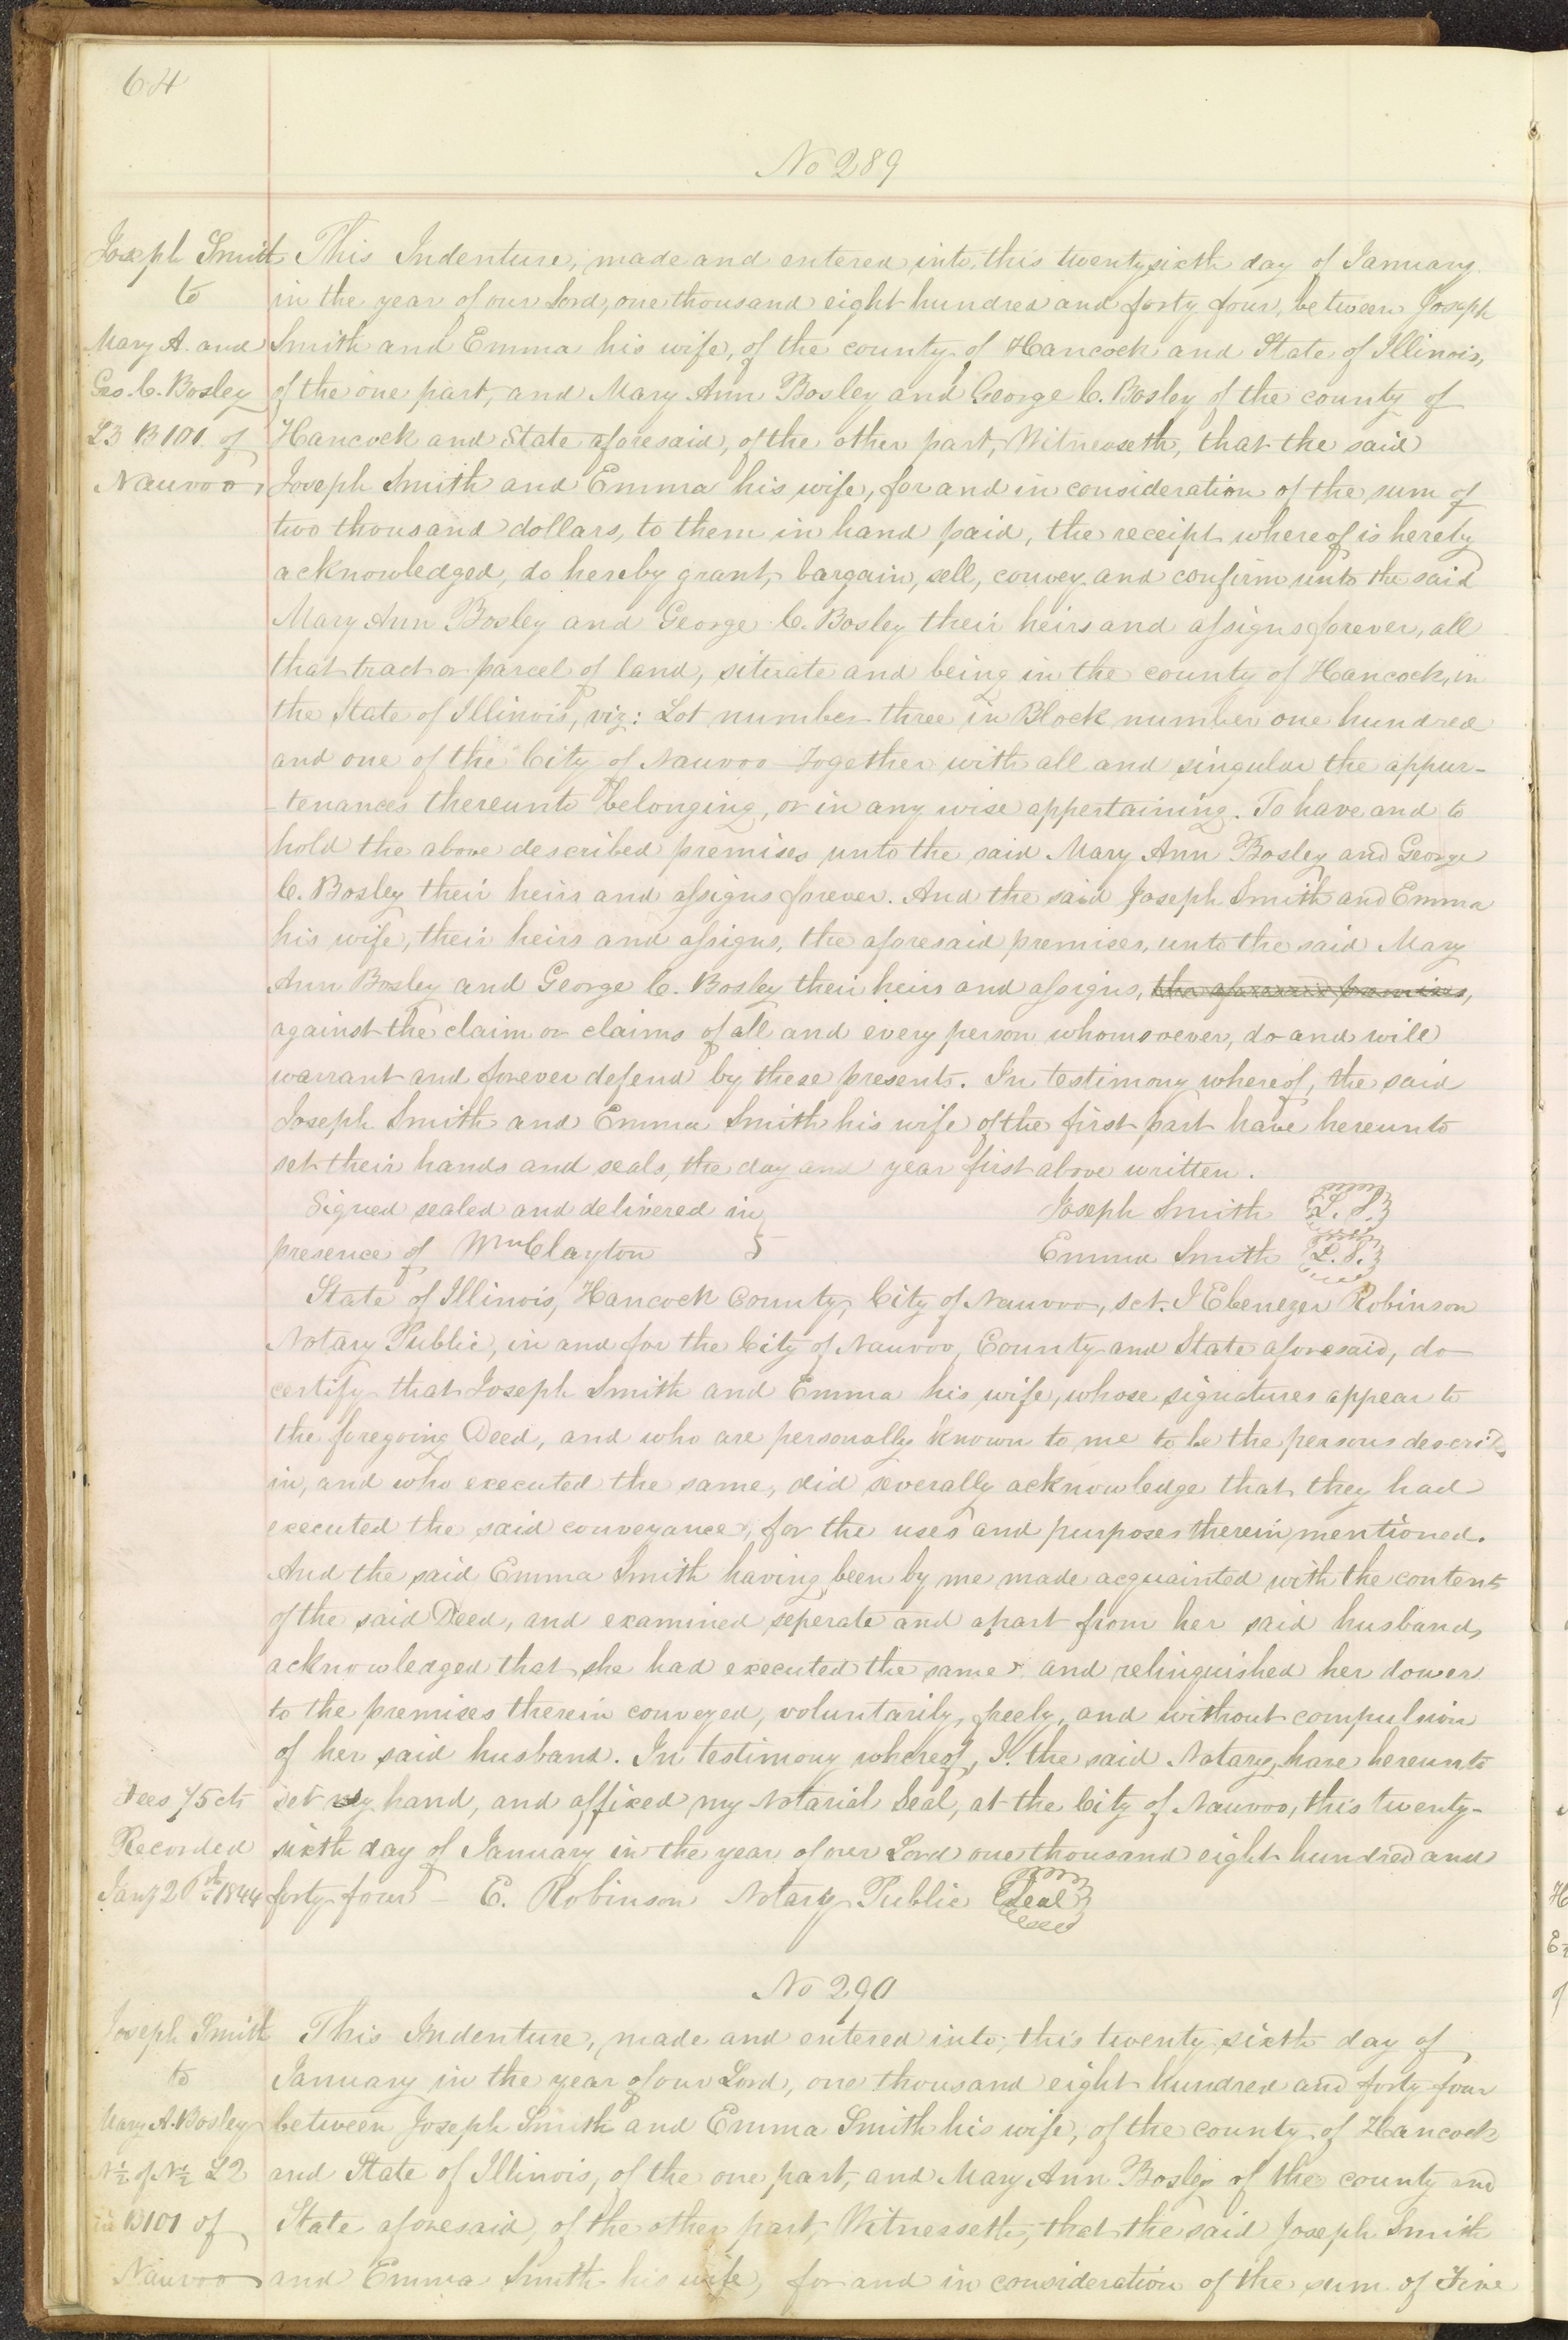 64
No 289
Joseph Smith This Indenture, made and entered into, this twenty sixth day of January
to in the year of our Lord, one thousand eight hundred and forty four, between Joseph
Mary A. and Smith and Emma his wife, of the county of Hancock and State of Illinois,
Geo. C. Bosley of the one part, and Mary Ann Bosley and George C. Bosley of the county of
L3 B101 of Hancock and State aforesaid, of the other part, Witnesseth, that the said
Nauvoo Joseph Smith and Emma his wife, for and in consideration of the sum of
two thousand dollars, to them in hand paid, the receipt whereof is hereby
acknowledged, do hereby grant, bargain, sell, convey and confirm unto the said
Mary Ann Bosley and George C. Bosley their heirs and assigns forever, all
that tract or parcel of land, situate and being in the county of Hancock, in
the State of Illinois, viz: Lot number three in Block number one hundred
and one of the City of Nauvoo Together with all and singular the appur-
-tenances thereunto belonging, or in any wise appertaining. To have and to
hold the above described premises unto the said Mary Ann Bosley and George
C. Bosley their heirs and assigns forever. And the said Joseph Smith and Emma
his wife, their heirs and assigns, the aforesaid premises, unto the said Mary
Ann Bosley and George C. Bosley their heirs and assigns, the aforesaid premises,
against the claim or claims of all and every person whomsoever, do and will
warrant and forever defend by these presents. In testimony whereof, the said
Joseph Smith and Emma Smith his wife of the first part have hereunto
set their hands and seals, the day and year first above written.
Signed sealed and delivered in Joseph Smith L.S.
presence of Wm Clayton Emma Smith L.S.
State of Illinois, Hancock County, City of Nauvoo, sct. I Ebenezer Robinson
Notary Public, in and for the City of Nauvoo, County and State aforesaid, do
certify that Joseph Smith and Emma his wife, whose signatures appear to
the foregoing Deed, and who are personally known to me to be the persons describd
in, and who executed the same, did severally acknowledge that they had
executed the said conveyance, for the uses and purposes therein mentioned.
And the said Emma Smith having been by me made acquainted with the contents
of the said Deed, and examined seperate and apart from her said husband,
acknowledged that she had executed the same & and relinquished her dower
to the premises therein conveyed, voluntarily, freely, and without compulsion
of her said husband. In testimony whereof, I. the said Notary, have hereunto
Fees 75 cts set my hand, and affixed my Notarial Seal, at the City of Nauvoo, this twenty-
Recorded sixth day of January in the year of our Lord one thousand eight hundred and
Jany 26th 1844 forty four - E. Robinson Notary Public Seal
No 290
Joseph Smith This Indenture, made and entered into, this twenty sixth day of
to January in the year of our Lord, one thousand eight hundred and forty four
Mary A. Bosley between Joseph Smith and Emma Smith his wife, of the county of Hancock
N½ of N½ L2 and State of Illinois, of the one part, and Mary Ann Bosley of the county and
in B101 of State aforesaid, of the other part, Witnesseth, that the said Joseph Smith
Nauvoo and Emma Smith his wife, for and in consideration of the sum of Five